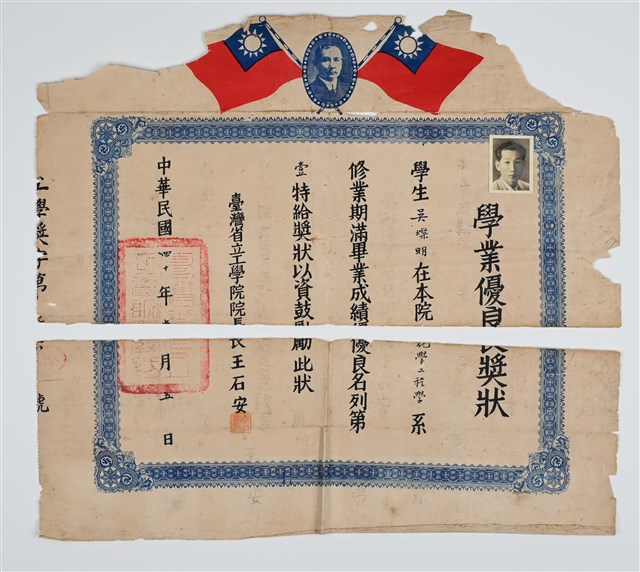 學業優良獎狀
學生吳燦明在本院化學工程學系
修業期滿畢業成績優良名列第
壹特給獎狀以資鼓勵此狀
臺灣省立工學院院長王石安
中華民國四十年 月 五日
工學獎字第 號